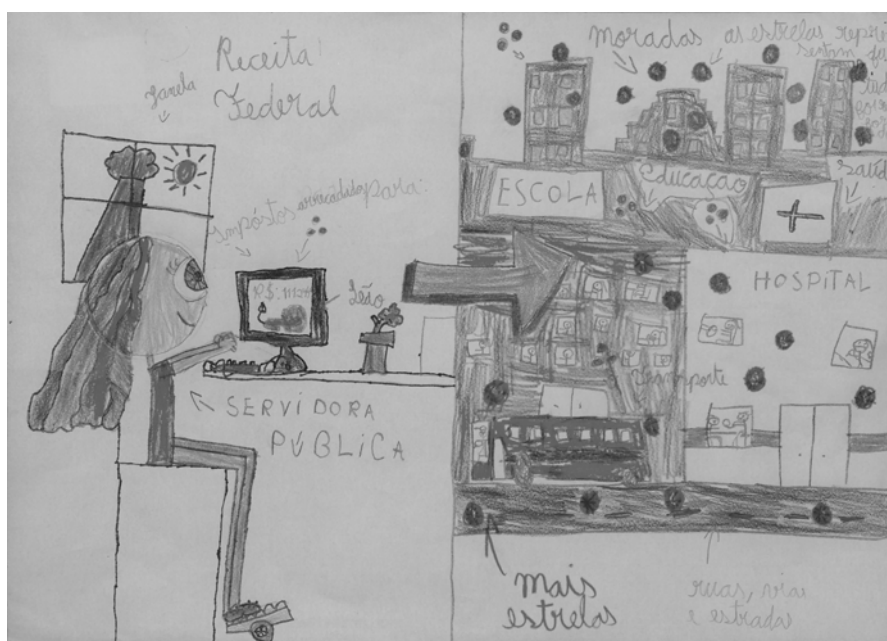 Receita
Federal
Janela
Impóstos arrecadados para:
R$:
Leão
SERVIDORA
PÚBLICA
moradas
as estrelas
ESCOLA
Educação
HOSPITAL
Transporte
mais
estrelas
ruas, vias
e estradas